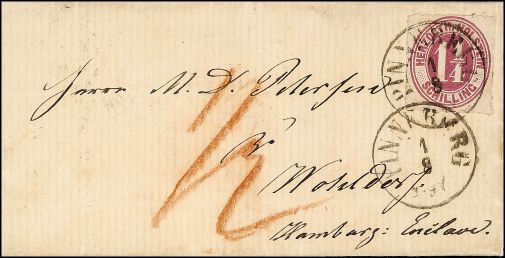 HERZOGTH. HOLSTEIN
1¼
SCHILLING
PINNEBERG
1
8
Herrn M. D. Petersen
PINNEBERG
1
8
1/2
Wohldorf
Hamburg: Enclave.